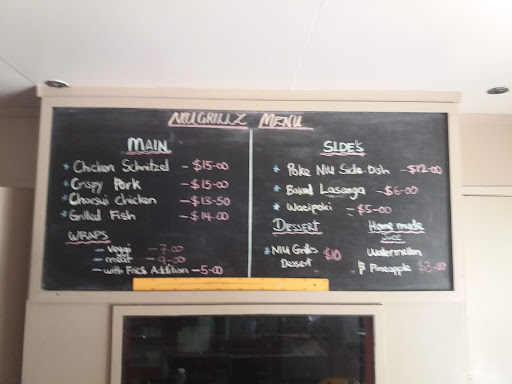 NIU GRILLZ MENU
MAIN
* Chicken Schnitzel - $15-00
* Crispy Pork - $15-00
* Charsui Chicken - $13-50
* Grilled Fish - $14-00
WRAPS
- veggi - 7-00
- meat - 9-00
- with Fries Addition - 5-00
SIDE'S
* Poke NIU Side-Dish - $12-00
* Baked Lasanga - $6-00
* Waeipoki - $5-00
DESSERT
* NIU Grills $10
Dessert
Home made
JUICE
Watermelon
Pineapple $3-00